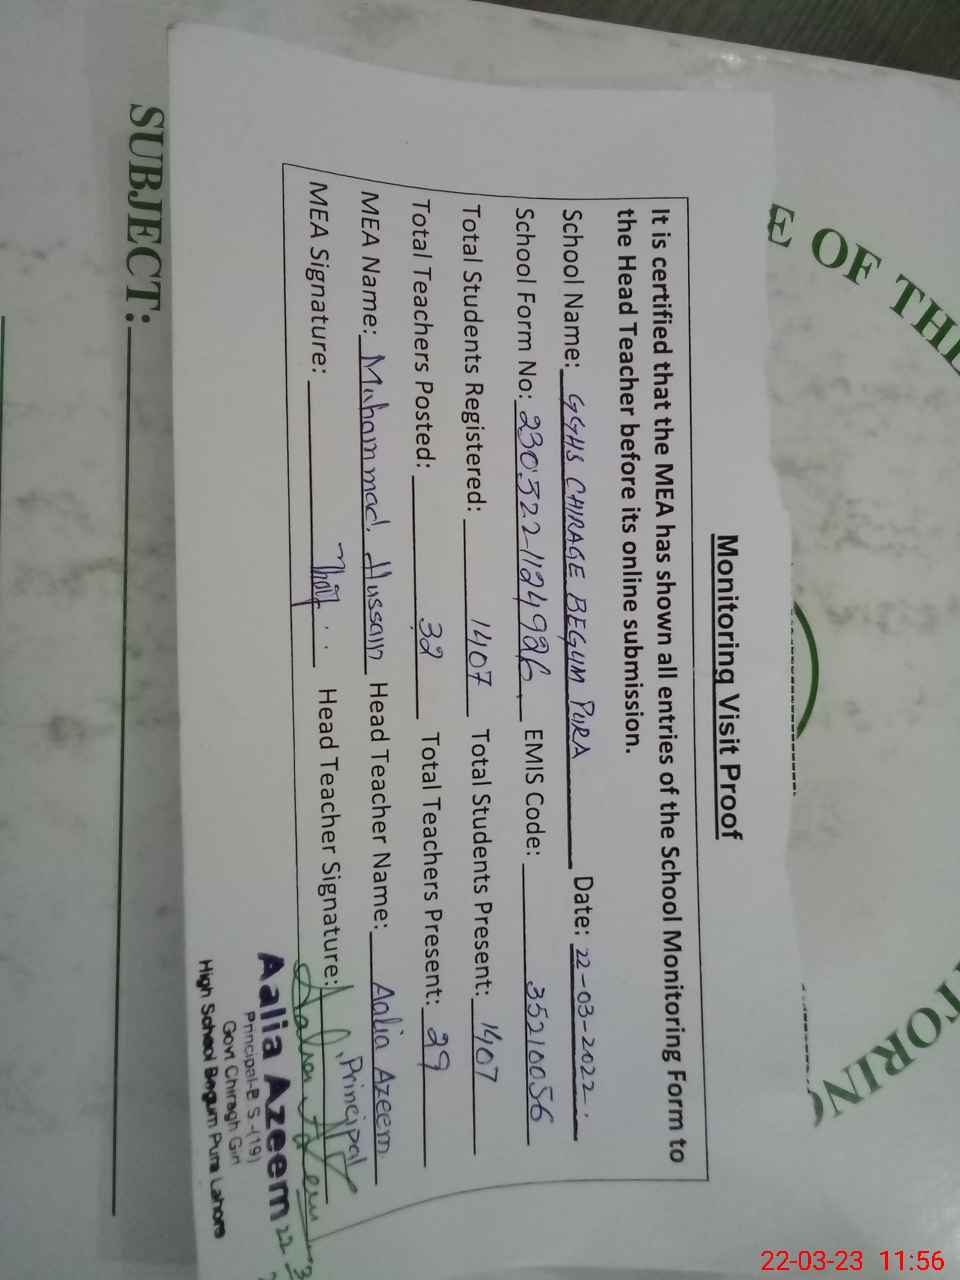 E OF THE
TORING
SUBJECT:
Monitoring Visit Proof
It is certified that the MEA has shown all entries of the School Monitoring Form to
the Head Teacher before its online submission.
School Name: GGHS CHIRAGE BEGUM PURA Date: 22-03-2022.
School Form No: EMIS Code: 35210056
Total Students Registered: 1407 Total Students Present: 1407
Total Teachers Posted: 32 Total Teachers Present: 29
MEA Name: Muhammad Hussain Head Teacher Name: Aalia Azeem
Principal
MEA Signature: Head Teacher Signature:
Aalia Azeem
Principal-B S-(19)
Govt Chiragh Girl
High School Begum Pura Lahore
22-03-23 11:56